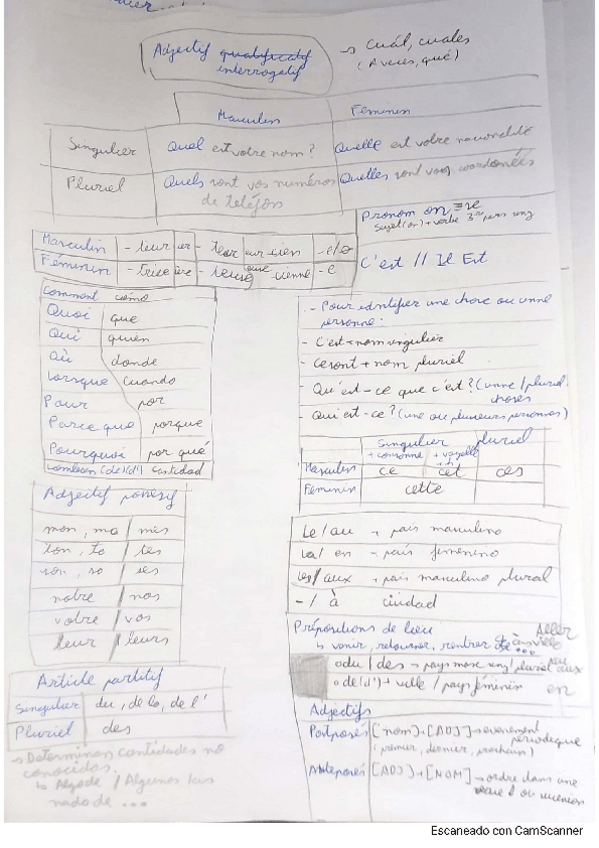 Adjectif qualificatif
interrogatif
→ Cuál, cuales
(A veces, qué)
Masculin Féminin
Singulier Quel est votre nom? Quelle est votre nacionalité
Pluriel Quels sont vos numéros Quelles sont vos coordonnées
de teléfons
Pronom on
sujet(on)+verbe 3re pers sing
Masculin -teur er -teur eur -ien -e/o
Féminin -trice ère -teuse euse -ienne -e
C'est // Il Est
Comment cómo
Quoi que
Qui quién
Où donde
Lorsque cuando
Pour por
Parce que porque
Pourquoi por qué
Combien (de/d') cantidad
- Pour identifier une chose ou unne
personne:
- C'est + nom singulier
- Ce sont + nom pluriel
- Qu'est-ce que c'est? (unne/plurid
choses
- Qui est-ce? (une ou plusieurs personnes)
Singulier pluriel
+ consonne + voyelle
Masculin ce cet ces
Féminin cette
Adjectif possesif
mon, ma / mes
ton, ta / tes
son, sa / ses
notre / nos
votre / vos
leur / leurs
Le/au → país masculino
La/ en → país femenino
Les/ aux → pais masculino plural
- / à ciudad
Prépositions de lieu Aller
↳ venir, retourner, rentrer de ... à
o du / des → pays masc sing/ pluriel au aux
o de(d') + ville / pays féminin en
Article partitif
Singulier du, de la, de l'
Pluriel des
→ Determinan cantidades no
conocidas.
↳ Algo de / Algunos /as
nada de ...
Adjectifs
Postposés [nom]+[ADJ] → évenement
périodique
(premier, dernier, prochain)
Anteposés [ADJ] + [NOM] → ordre dans une